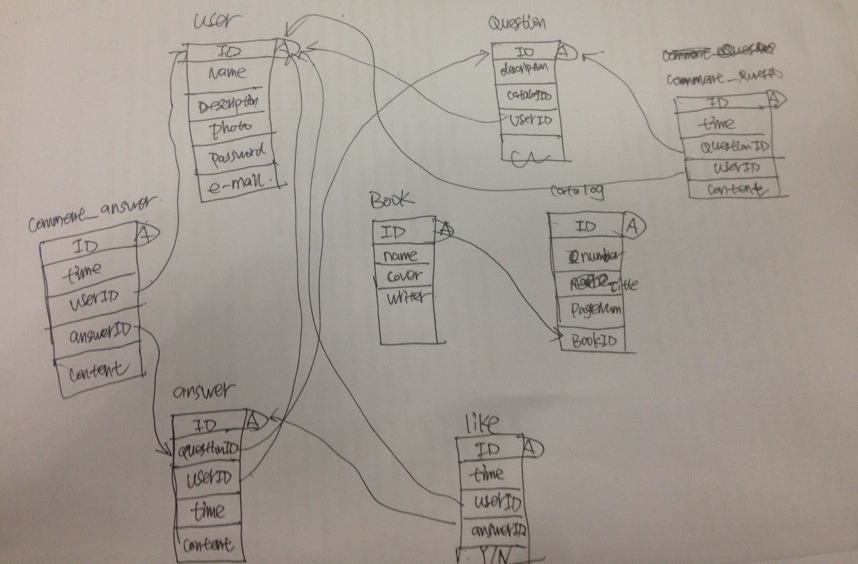 user
ID A
Name
Description
photo
password
e-mail
Question
ID A
description
catalogID
userID
ID A
time
questionID
userID
content
comment_answer
ID A
time
userID
answerID
content
Book
ID A
name
cover
writer
catalog
ID A
number
Title
PageNum
BookID
answer
ID A
questionID
userID
time
content
like
ID A
time
userID
answerID
Y/N